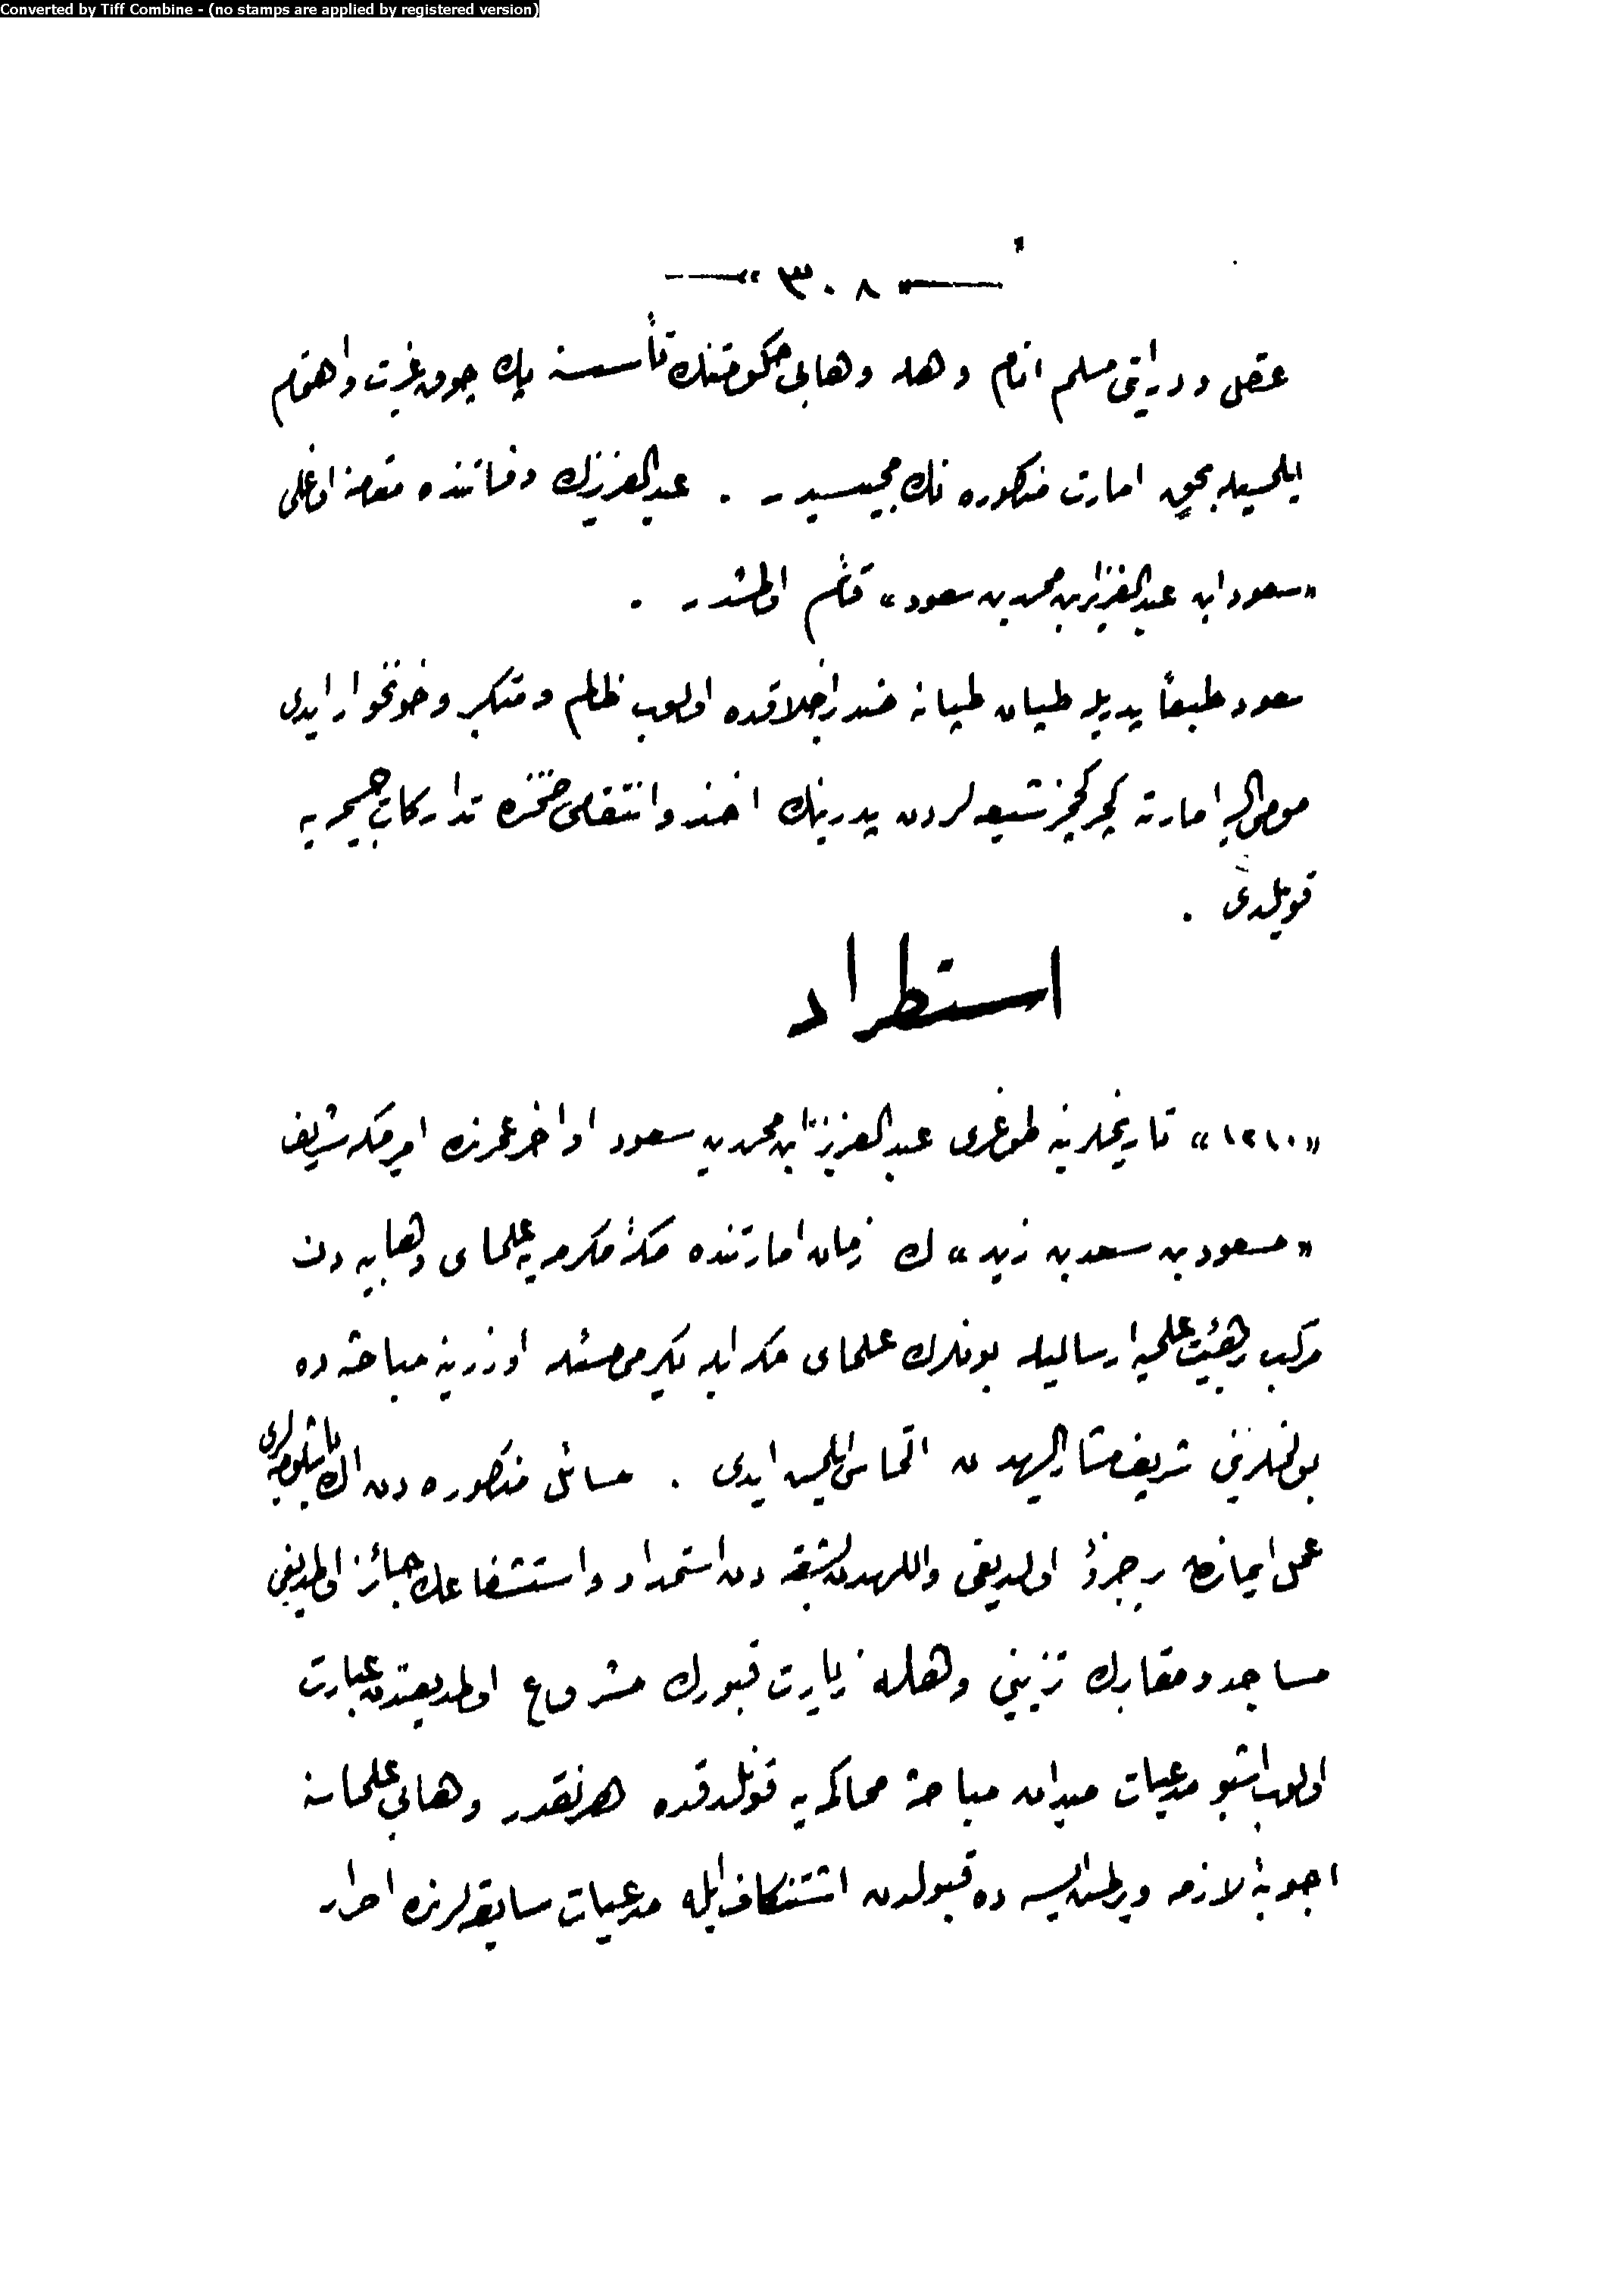 Converted by Tiff Combine - (no stamps are applied by registered version)
— ٣٠٨ —
عقل و درایتی مسلم انام و هله وهابی حکومتنك تأسسنه پك چوق غیرت واهتمام
ایلمسیله بحق امارت مذکوره نك مجیسیدر . عبدالعزیزك وفاتنده مقامنه اوغلی
«سعود ابن عبدالعزیز ابن محمد بن سعود» قائم اولمشدر .
سعود طبعاً پدریله طبان طبانه ضد اخلاقده اولوب ظالم و متکبر و خونخوار ایدی
مومی الیه امارته کچر کچمز شیعه لردن پدرینك اخذ و انتقامی ضمننده تدارکات جسیمه یه
قویلدی .
استطراد
«١٢١٠» تاریخلرینه طوغری عبدالعزیز ابن محمد بن سعود اواخر عمرنده امیر مکه شریف
«مسعود بن سعد بن زید» ك زمان امارتنده مکۀ مکرمه یه علمای وهابیه دن
مرکب بر هیئت علمیه ارسالیله بونلرك علمای مکه ایله یکرمی مسئله اوزرینه مباحثه ده
بولنملرینی شریف مشار الیهدن التماس ایلمش ایدی . مسائل مذکوره دن اك باشلوجه لری
عمل ایمانڭ بر جزؤ اولدیغی واللهدن بشقه دن استمداد و استشفاعك جائز اولمدیغی
مساجد و مقابرك تزیینی و هله زیارت قبورك مشروع اولمدیغندن عبارت
اولوب اشبو مدعیات میدان مباحثه محاکمه یه قونلدقده هر نقدر وهابی علماسنه
اجوبۀ لازمه ویرلمش ایسه ده قبولدن استنکاف ایله مدعیات سابقه لرنده اصرار